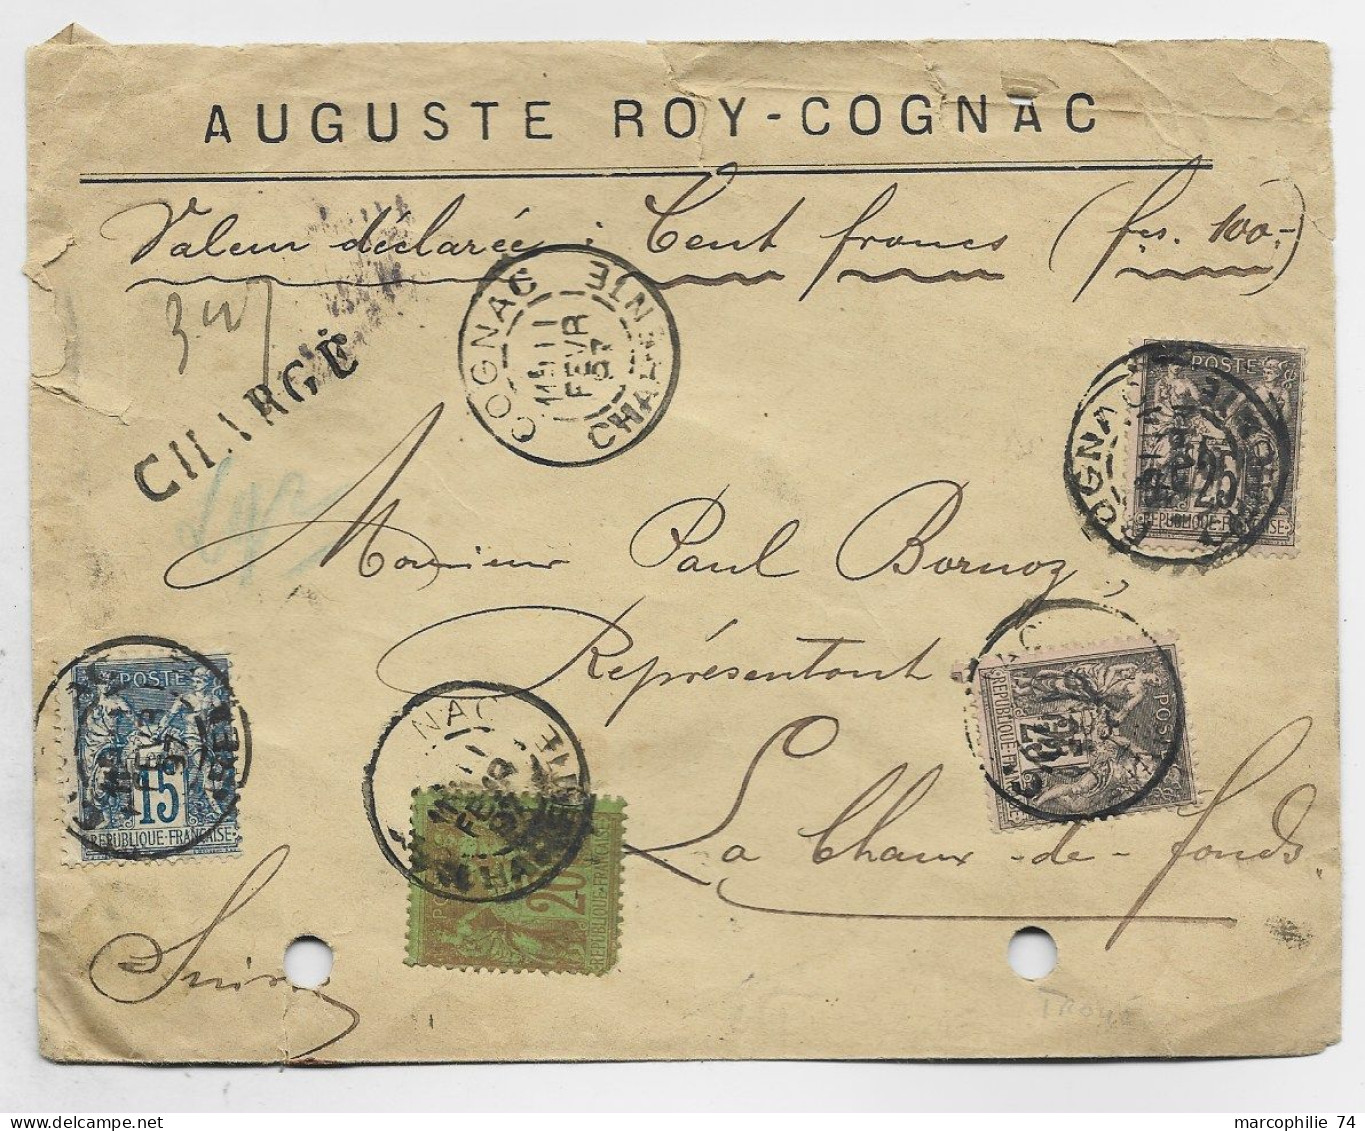 AUGUSTE ROY-COGNAC
Valeur déclarée : Cent francs (frs. 100.-)
COGNAC
CHARENTE
11
FEVR
97
CHARGÉ
POSTES
25
REPUBLIQUE FRANÇAISE
Monsieur Paul Bornoz,
Représentant
POSTES
25
REPUBLIQUE FRANÇAISE
POSTES
15
REPUBLIQUE FRANÇAISE
20
REPUBLIQUE FRANÇAISE
La Chaux-de-fonds
Suisse
TROUÉ
marcophilie 74